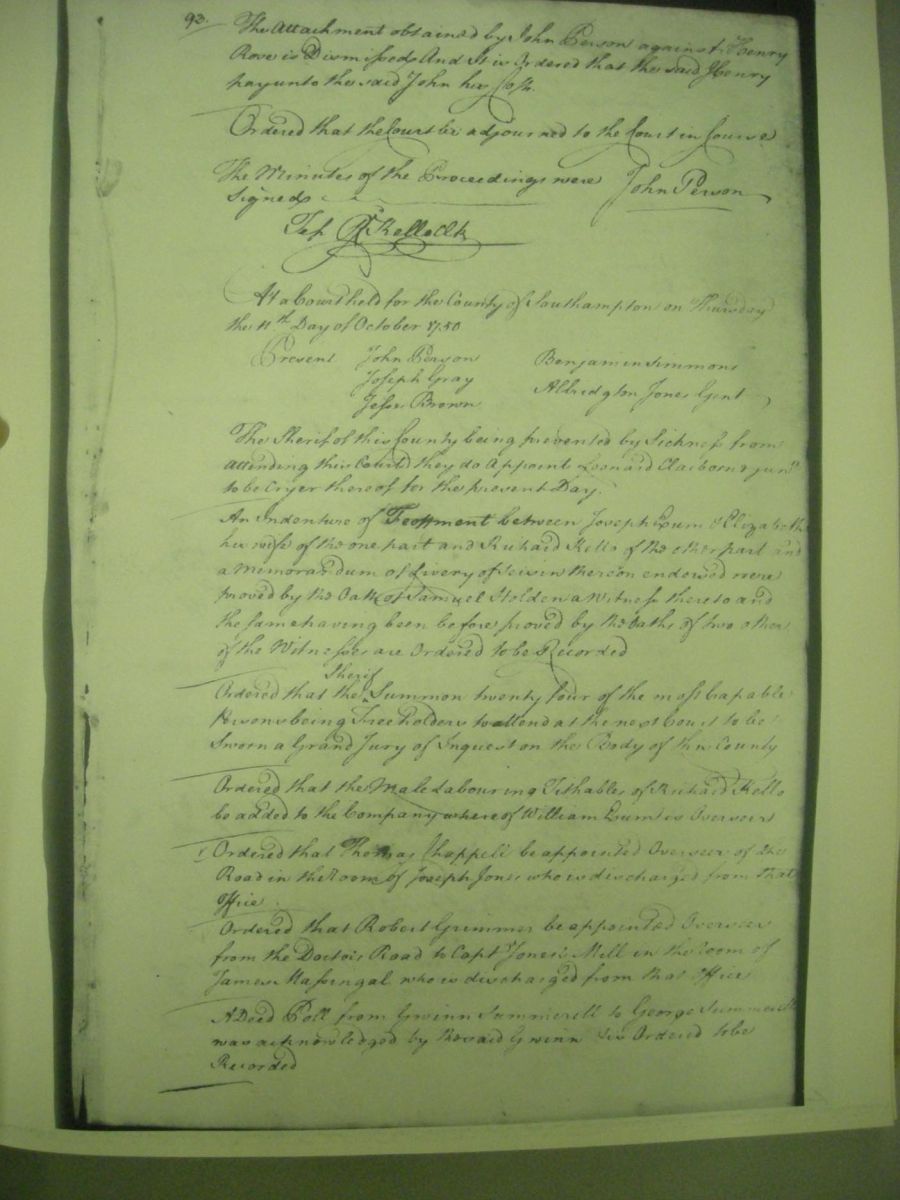 93.
The Attachment obtained by John Person against Henry
Rose is Dismissed And It is Ordered that the said Henry
pay unto the said John his Costs.
Ordered that the Court be adjourned to the Court in Course
The Minutes of the Proceedings were John Person
Signed
Test Rd Kello Clk
At a Court held for the County of Southampton on Thursday
the 11th Day of October 1750
Present John Person Benjamin Simmons
Joseph Gray Albridgton Jones Gent
Jesse Brown
The Sherif of this County being prevented by Sickness from
attending this Court they do Appoint Leonard Claiborne junr
to be Cryer thereof for the present Day.
An Indenture of Feoffment between Joseph Exum & Elizabeth
his wife of the one part and Richard Kello of the other part and
a Memorandum of Livery of Seisin thereon endorsed were
proved by the Oath of Samuel Holden a Witness thereto and
the same having been before proved by the Oaths of two other
of the Witnesses are Ordered to be Recorded
Sherif
Ordered that the Summon twenty four of the most Capable
Persons being Freeholders to attend at the next Court to be
Sworn a Grand Jury of Inquest on the Body of this County
Ordered that the Male Labouring Tithables of Richard Kello
be added to the Company whereof William Exum is Overseer
Ordered that Thomas Chappell be appointed Overseer of the
Road in the Room of Joseph Jones who is discharged from that
Office.
Ordered that Robert Grimmer be appointed Overseer
from the Doctors Road to Capt Jones's Mill in the room of
James Massingal who is discharged from that Office
A Deed Poll from Gwinn Summerell to George Summerell
was acknowledged by the said Gwinn & is Ordered to be
Recorded